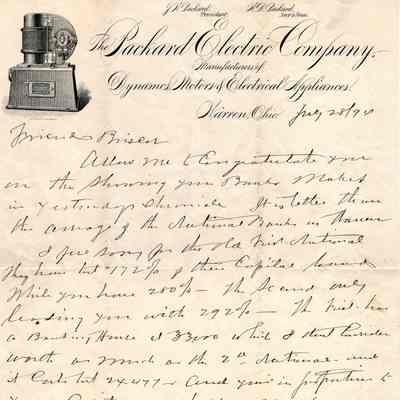 J W Packard
President
W D Packard
Secr & Treas
The Packard Electric Company,
Manufacturers of
Dynamos, Motors & Electrical Appliances.
Warren, Ohio July 28/94
Friend
Allow me to Congratulate you
on the Showing your Bank Makes
in Yesterdays Chronicle It is better than
the average of the National Banks in Warren
I feel sorry for the Old First National
They have but 172% of their Capital loaned
While you have 280% - The Second only
leading you with 292% - The First has
a Banking House at 33000 which I dont Consider
worth as much as the 2nd National and
it Costs but 24477 - and yours in proportion to